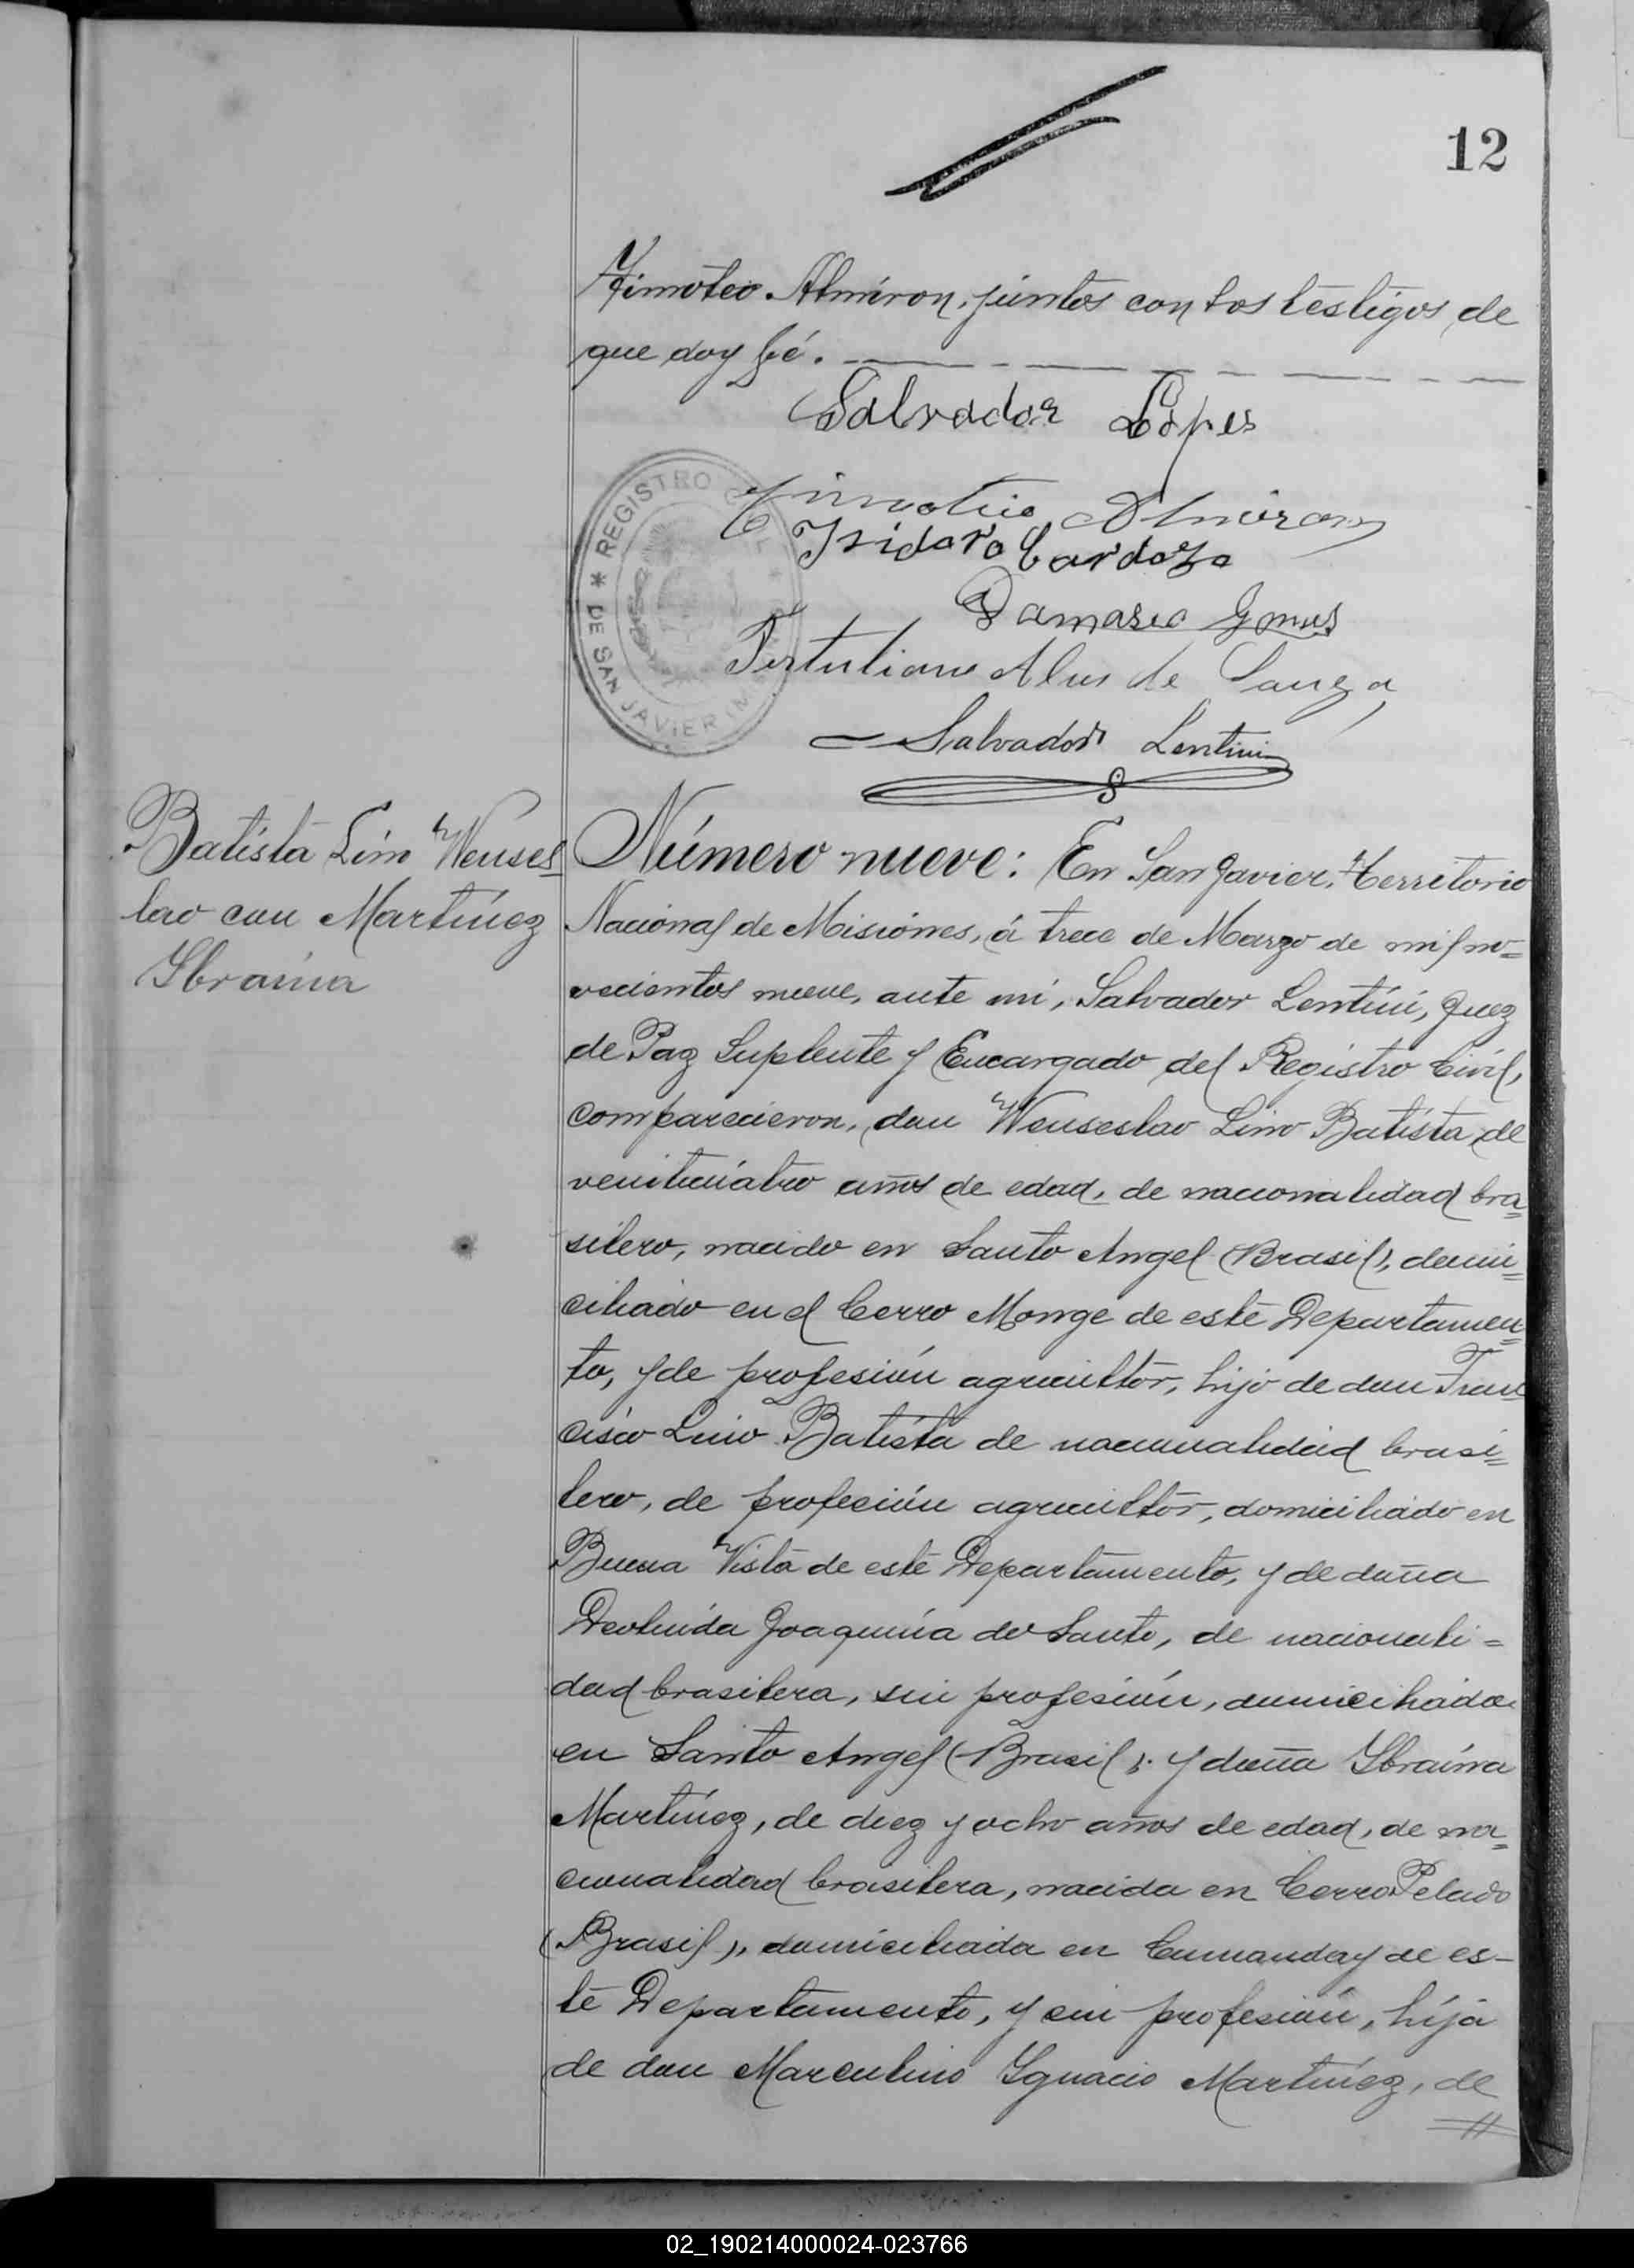 12
Timoteo Almiron, juntos con los testigos de
que doy fé.
Salvador Lopes
Timotio Almiron
Isidoro Cardozo
Damasio Gomes
Tertuliano Alves de Souza
Salvador Lentini
REGISTRO
DE SAN JAVIER
Batista Lino Wenses
lao con Martínez
Ybraina
Número nueve: En San Javier, Territorio
Nacional de Misiones, á trece de Marzo de mil no=
vecientos nueve, ante mi, Salvador Lentini, Juez
de Paz Suplente y Encargado del Registro Civil,
comparecieron, don Wenseslao Lino Batista, de
venticuatro años de edad, de nacionalidad bra=
silero, nacido en Santo Angel (Brasil), domi=
ciliado en el Cerro Monge de este Departamen=
to, y de profesión agricultor, hijo de don Fran
cisco Lino Batista de nacionalidad brasi=
lero, de profesión agricultor, domiciliado en
Buena Vista de este Departamento, y de doña
Joaquina do Santo, de nacionali=
dad brasilera, sin profesión, domiciliada
en Santo Angel (Brasil); y doña Ybraina
Martínez, de diez y ocho años de edad, de na=
cionalidad brasilera, nacida en Cerro Pelado
(Brasil), domiciliada en Cumanday de es-
te Departamento, y sin profesión, hija
de don Marculino Ygnacio Martínez, de
02_190214000024-023766